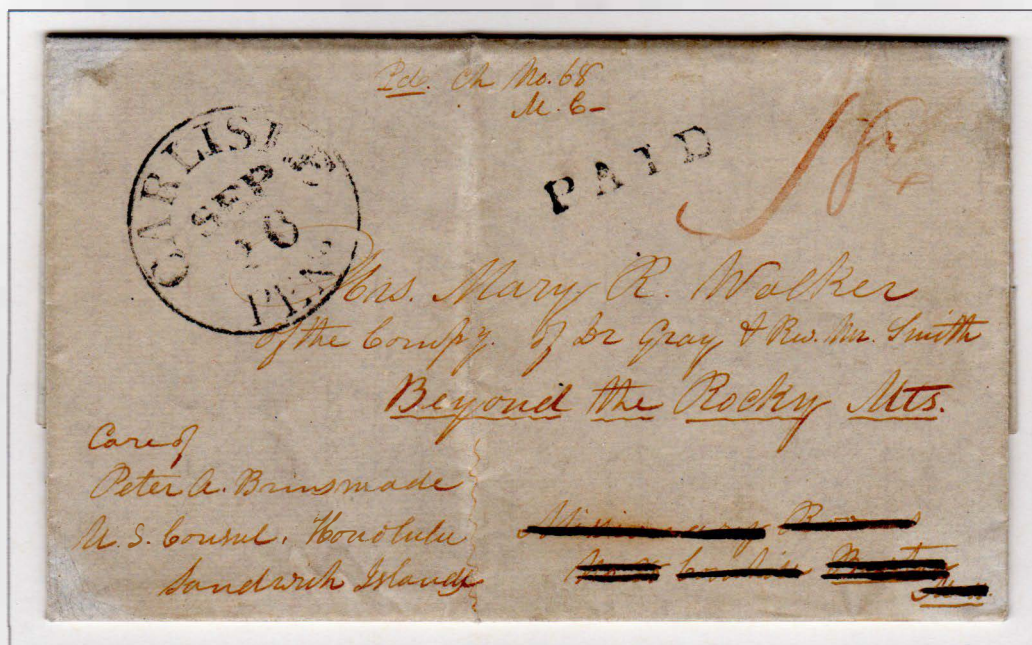 Pd. Ch No. 68
M. C-
CARLISLE
SEP
PEN
PAID
Mrs. Mary R. Walker
of the Compy. of Dr Gray & Rev. Mr. Smith
Beyond the Rocky Mts.
Care of
Peter A. Brinsmade
U. S. Consul. Honolulu
Sandwich Islands
Missionary Rooms